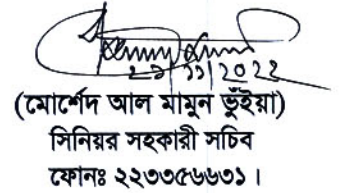 ২৯/১১/2022
(মোর্শেদ আল মামুন ভূঁইয়া)
সিনিয়র সহকারী সচিব
ফোনঃ ২২৩৩৫৬৬৩১।